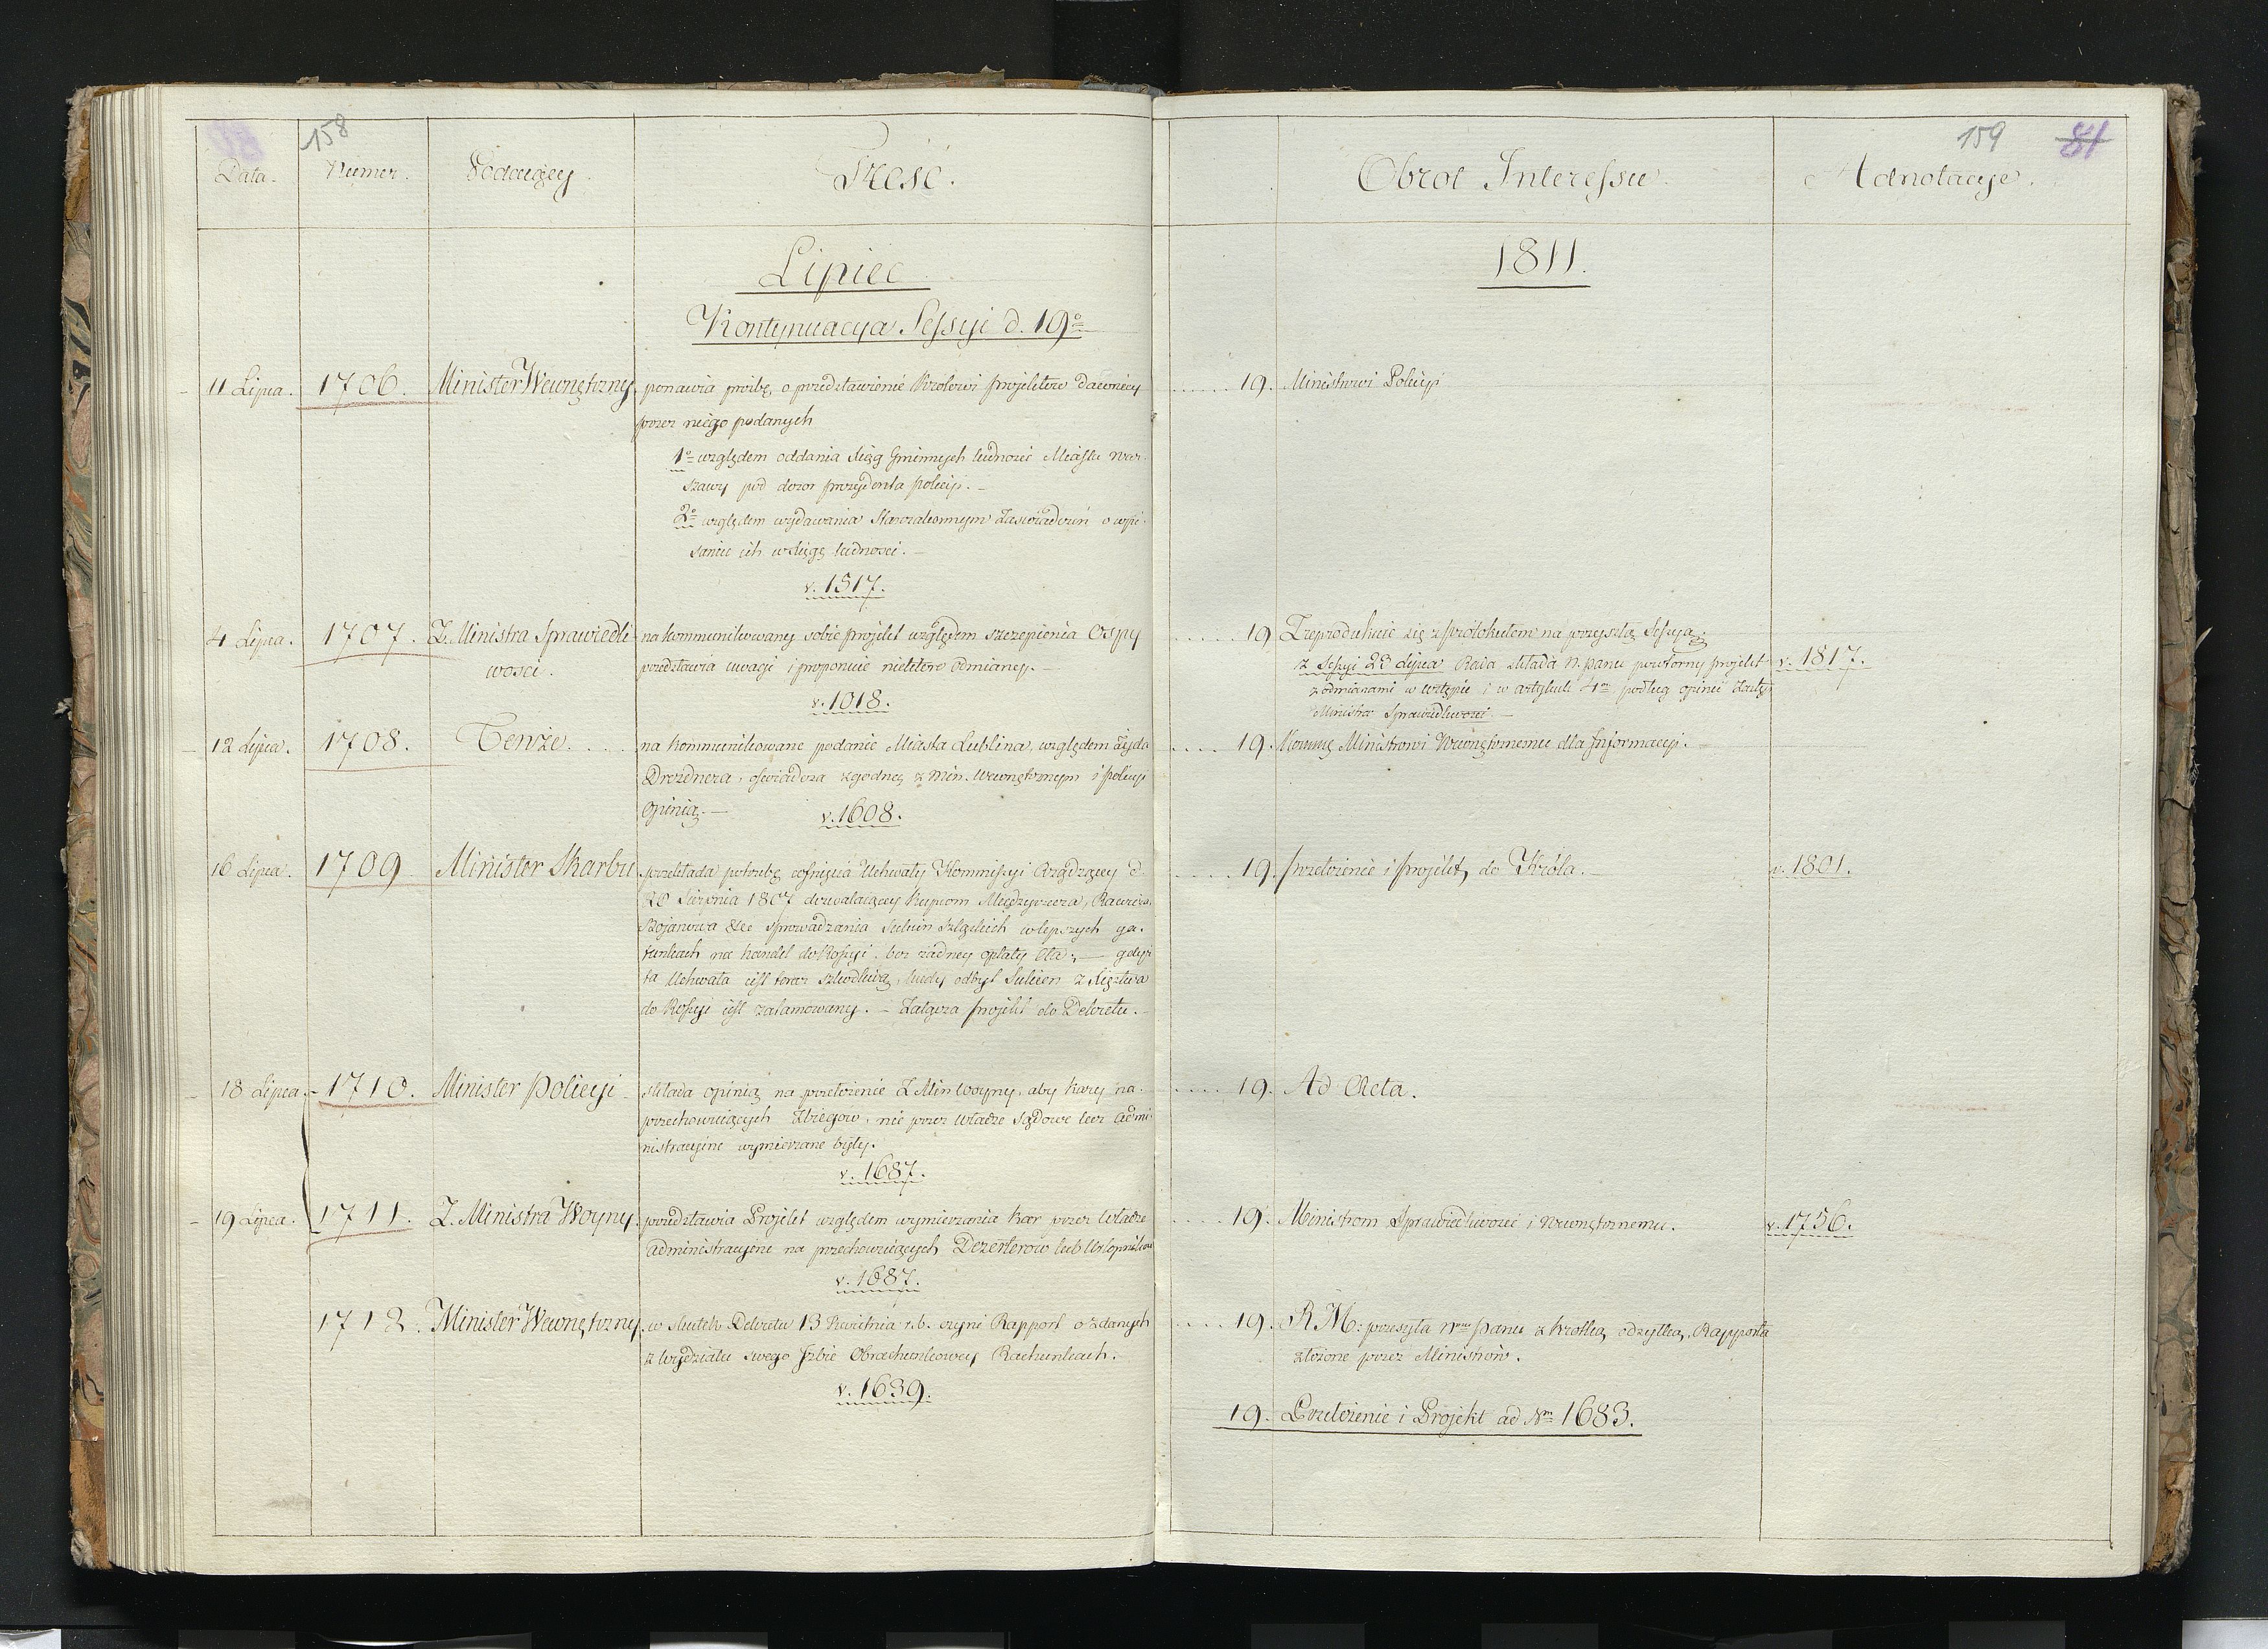 158
159
81
Data.
Numer.
Podaiący.
Treść.
Obrot Interessu.
Adnotacye.
Lipiec
1811.
Kontynuacya Sessyi d. 19º
11 Lipca. 1706. Minister Wewnętrzny. ponawia proźbę, o przedstawienie Krolowi projektow dawniey
przez niego podanych
1º względem oddania Xiąg Gminnych ludnosci Miasta War-
szawy pod dozor prezydenta policyi. –
2º względem wydawania Starozakonnym Zaswiadczeń o wpi-
saniu ich w xięgę ludnosci. –
v. 1517.
..... 19. Ministrowi Policyi
4 Lipca. 1707. Z. Ministra Sprawiedli-
wosci.
na kommunikowany sobie projekt względem szczepienia Ospy
przedstawia uwagi i proponuie niektore odmiany. –
v. 1018.
..... 19 Zreprodukuie się z protokułem na przyszłą Sessyą.
z Sessyi 23 Lipca Rada składa N. panu powtorny projekt
z odmianami w wstępie i w artykule 4m podług opinii Zastęp
Ministra Sprawiedliwosci –
v. 1817.
12 Lipca. 1708. Tenże. ....
na kommunikowane podanie Miasta Lublina, względem Żyda
Dreznera, oswiadcza zgodną z Min. Wewnętrznym i policyi
Opinią. –
v. 1608.
.... 19. Kommę Ministrowi Wewnętrznemu dla Informacyi. –
16 Lipca. 1709 Minister Skarbu
przekłada potrzebę cofnięcia Uchwały Kommissyi Rządzącey d.
20 Sierpnia 1807 dozwalaiącey kupcom Międzyrzecza, Rawicza,
Bojanowa &c sprowadzania Sukien Szląskich w lepszych ga-
tunkach na handel do Rossyi bez żadney opłaty Cła; – gdyż
ta Uchwała iest teraz szkodliwą, kiedy odbyt Sukien z Xięztwa
do Rossyi iest zatamowany. – Załącza projekt do Dekretu. –
..... 19. przełożenie i projekt, do Króla. –
v. 1801.
18 Lipca. 1710. Minister Policyi
składa opinią na przełożenie Z Min Woyny, aby kary na
przechowuiących Zbiegow, nie przez Władze Sądowe lecz admi-
nistracyine wymierzane były.
v. 1687.
..... 19. Ad Acta.
19 Lipca. 1711. Z. Ministra Woyny
przedstawia Projekt względem wymierzania kar przez Władze
administracyine na przechowuiących Dezerterow lub Urlopników
v. 1687.
.... 19. Ministrom Sprawiedliwosci i Wewnętrznemu.
v. 1756.
1712. Minister Wewnętrzny.
w skutek Dekretu 13 Kwietnia r. b. czyni Rapport o zdanych
z Wydziału swego Jzbie Obrachunkowey Rachunkach.
v. 1639.
.... 19. R M: przesyła Nmu panu z krotką odezwą, Rapporta
złożone przez Ministrów.
19. Przełożenie i Projekt ad Nm 1683.